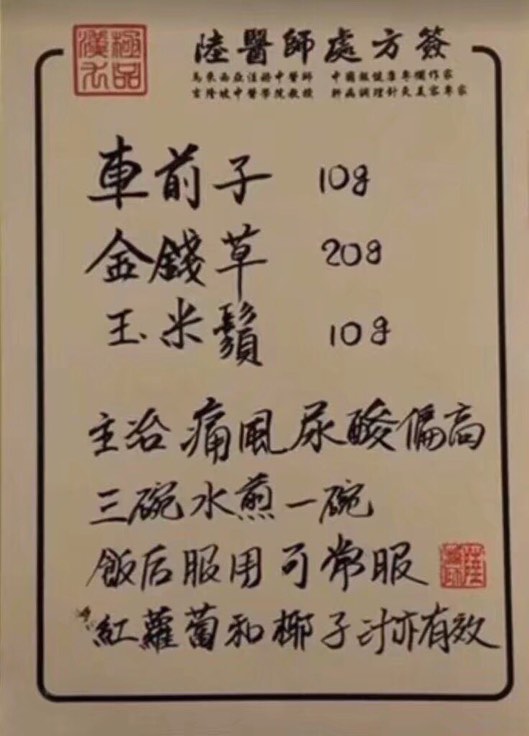 極品
漢方
陸醫師處方簽
馬來西亞注冊中醫師 中國報健康專欄作家
吉隆坡中醫學院教授 肝病調理針灸美容專家
車前子 10g
金錢草 20g
玉米鬚 10g
主治痛風尿酸偏高
三碗水煎一碗
飯后服用可常服
紅蘿蔔和椰子汁亦有效